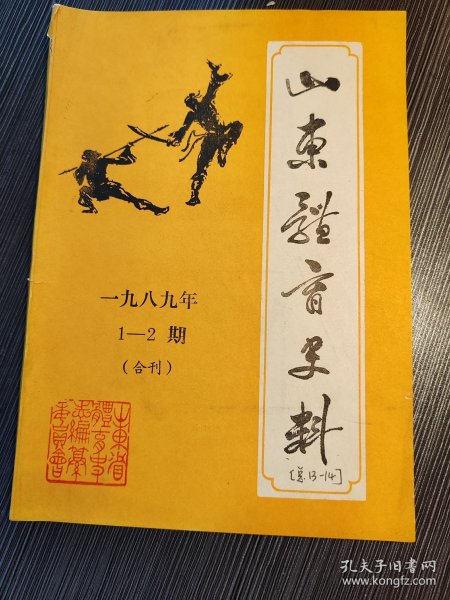 山东體育史料
[总13-14]
一九八九年
1—2 期
（合刊）
山東省
體育史
志編纂
委員會
孔夫子旧书网
www.kongfz.com